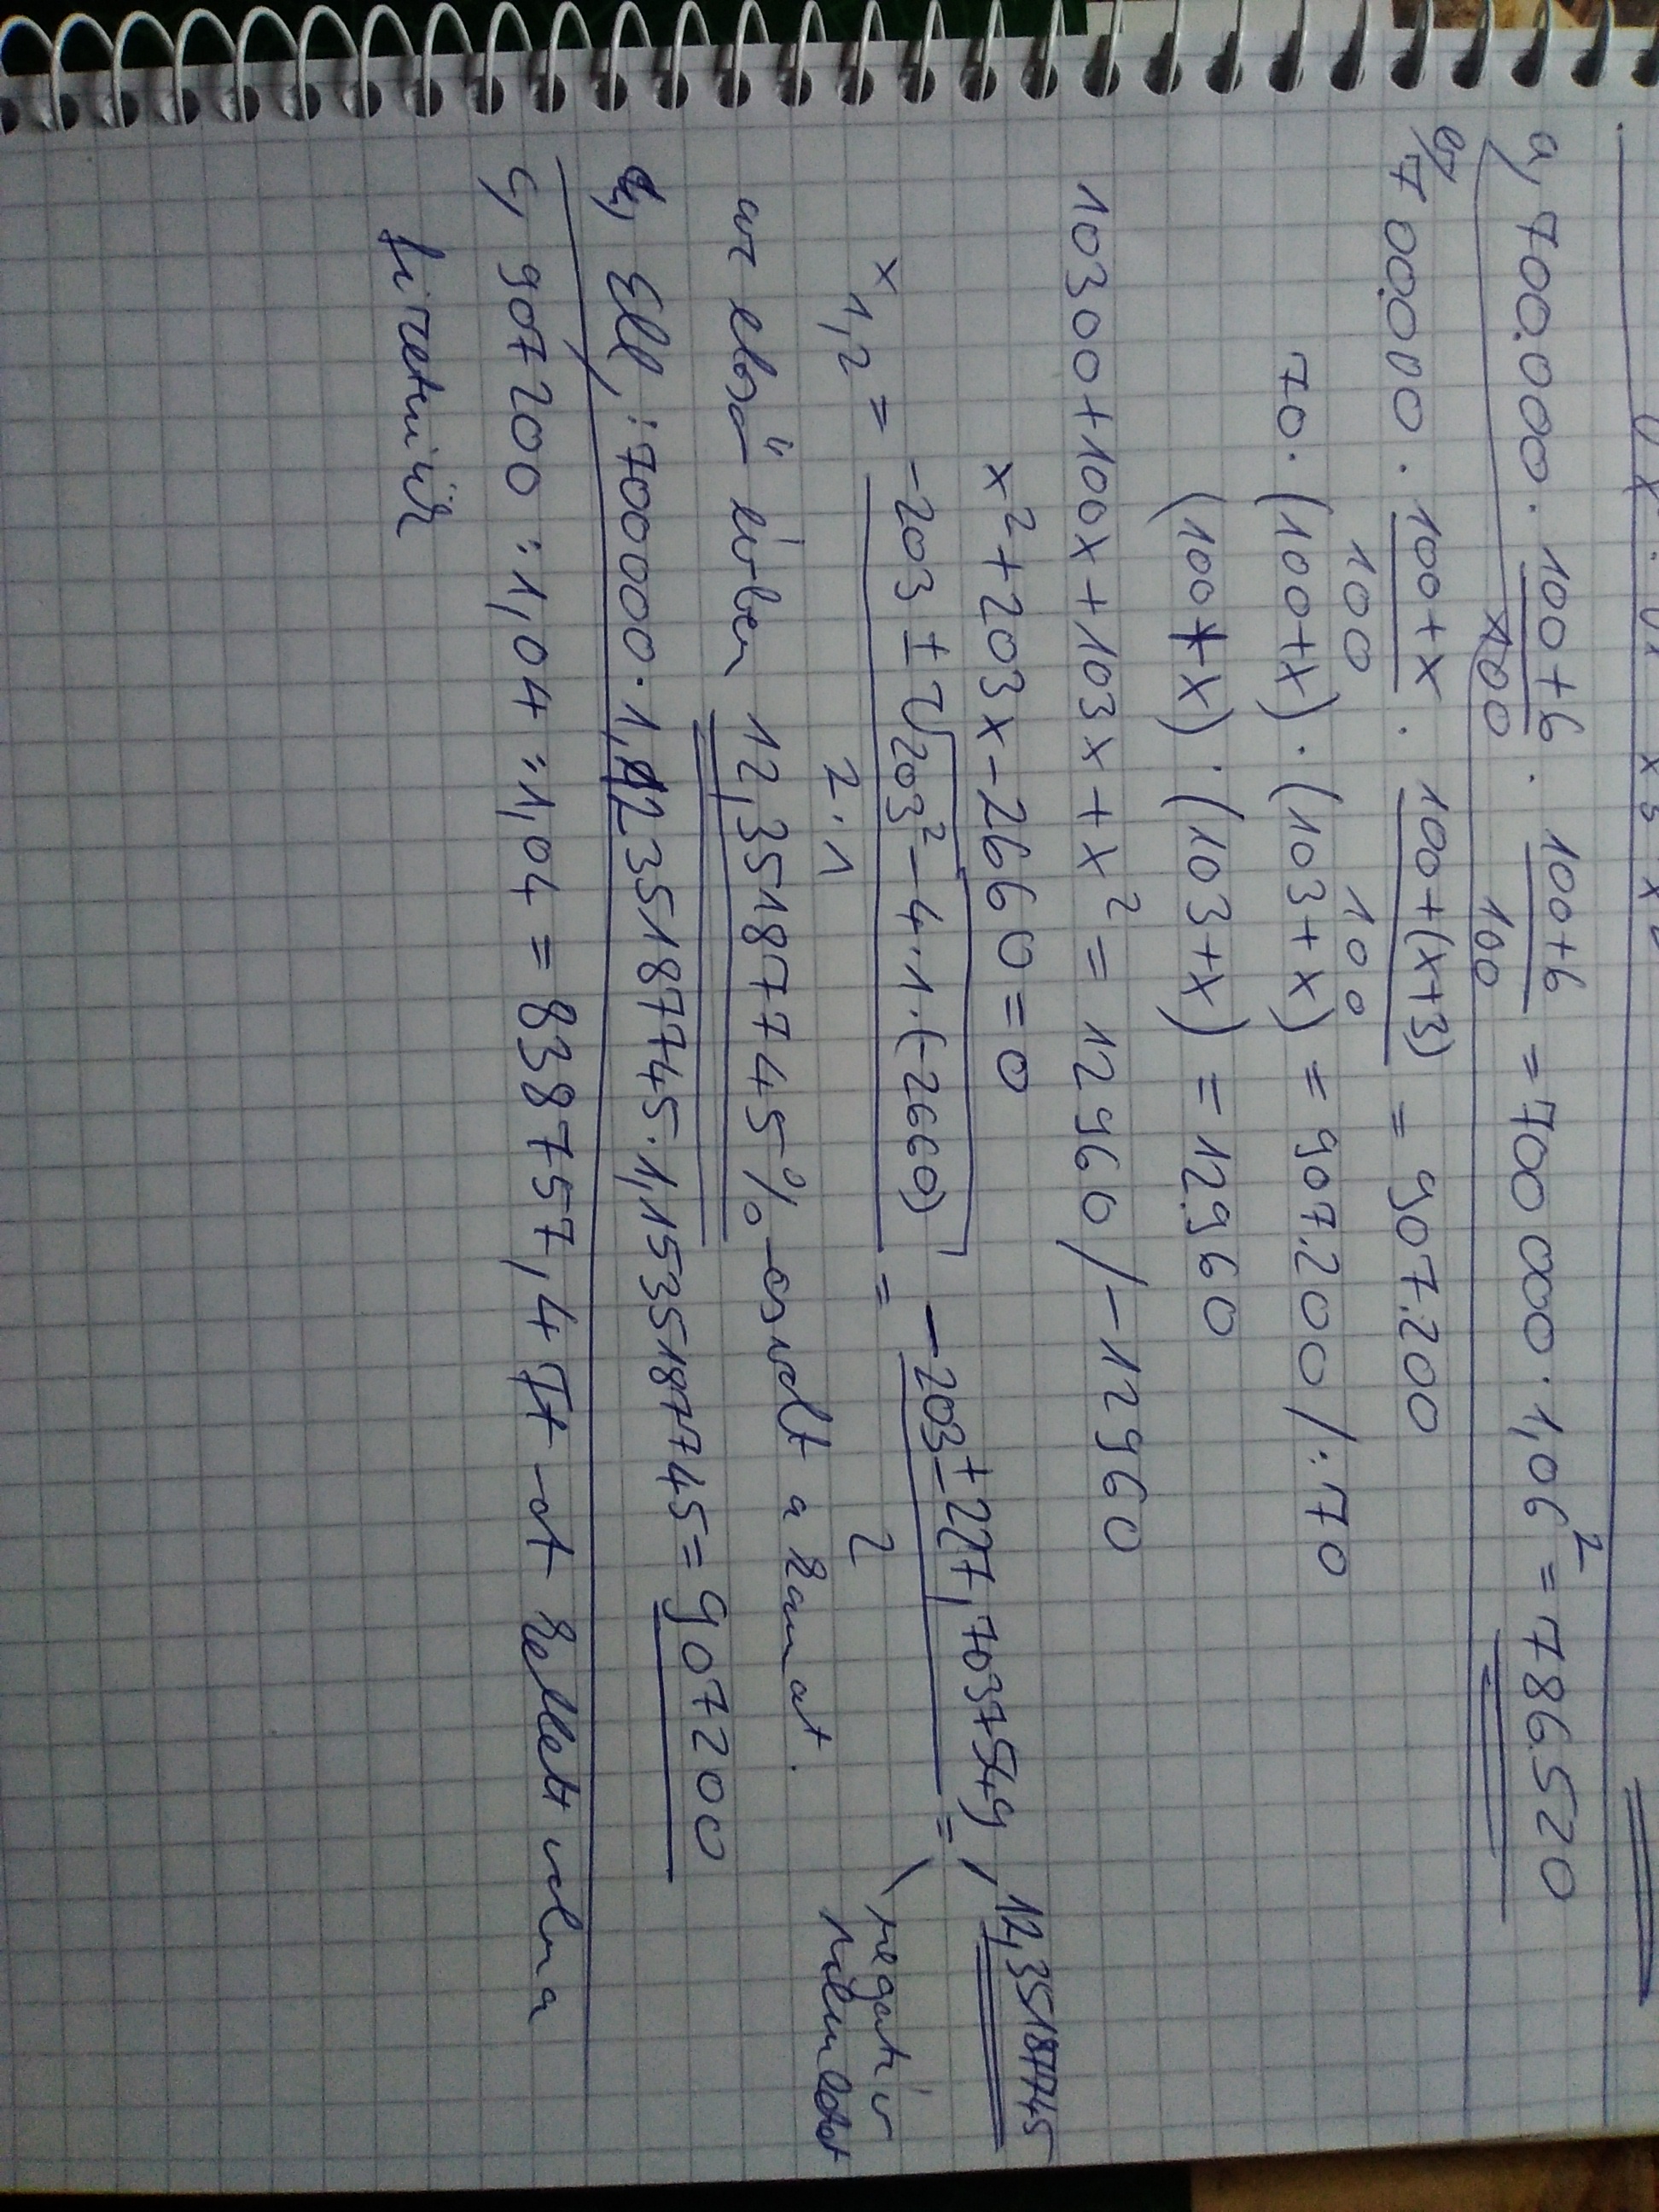 a, 700.000 · (100+6)/100 · (100+6)/100 = 700 000 · 1,06² = 786.520
b, 700.000 · (100+x)/100 · (100+(x+3))/100 = 907.200
70 · (100+x) · (103+x) = 907.200 /:70
(100+x) · (103+x) = 12.960
10300+100x+103x+x² = 12960 /-12960
x²+203x-2660=0
x1,2 = (-203 ± √(203²-4·1·(-2660)))/(2·1) = (-203 ± 227,7037549)/2 = 12,35187745
negatív nem lehet
az első évben 12,35187745%-os volt a kamat.
Ell.: 700000 · 1,1235187745 · 1,1535187745 = 907200
c, 907200 : 1,04 : 1,04 = 838757,4 Ft-ot kellett volna
fizetniük